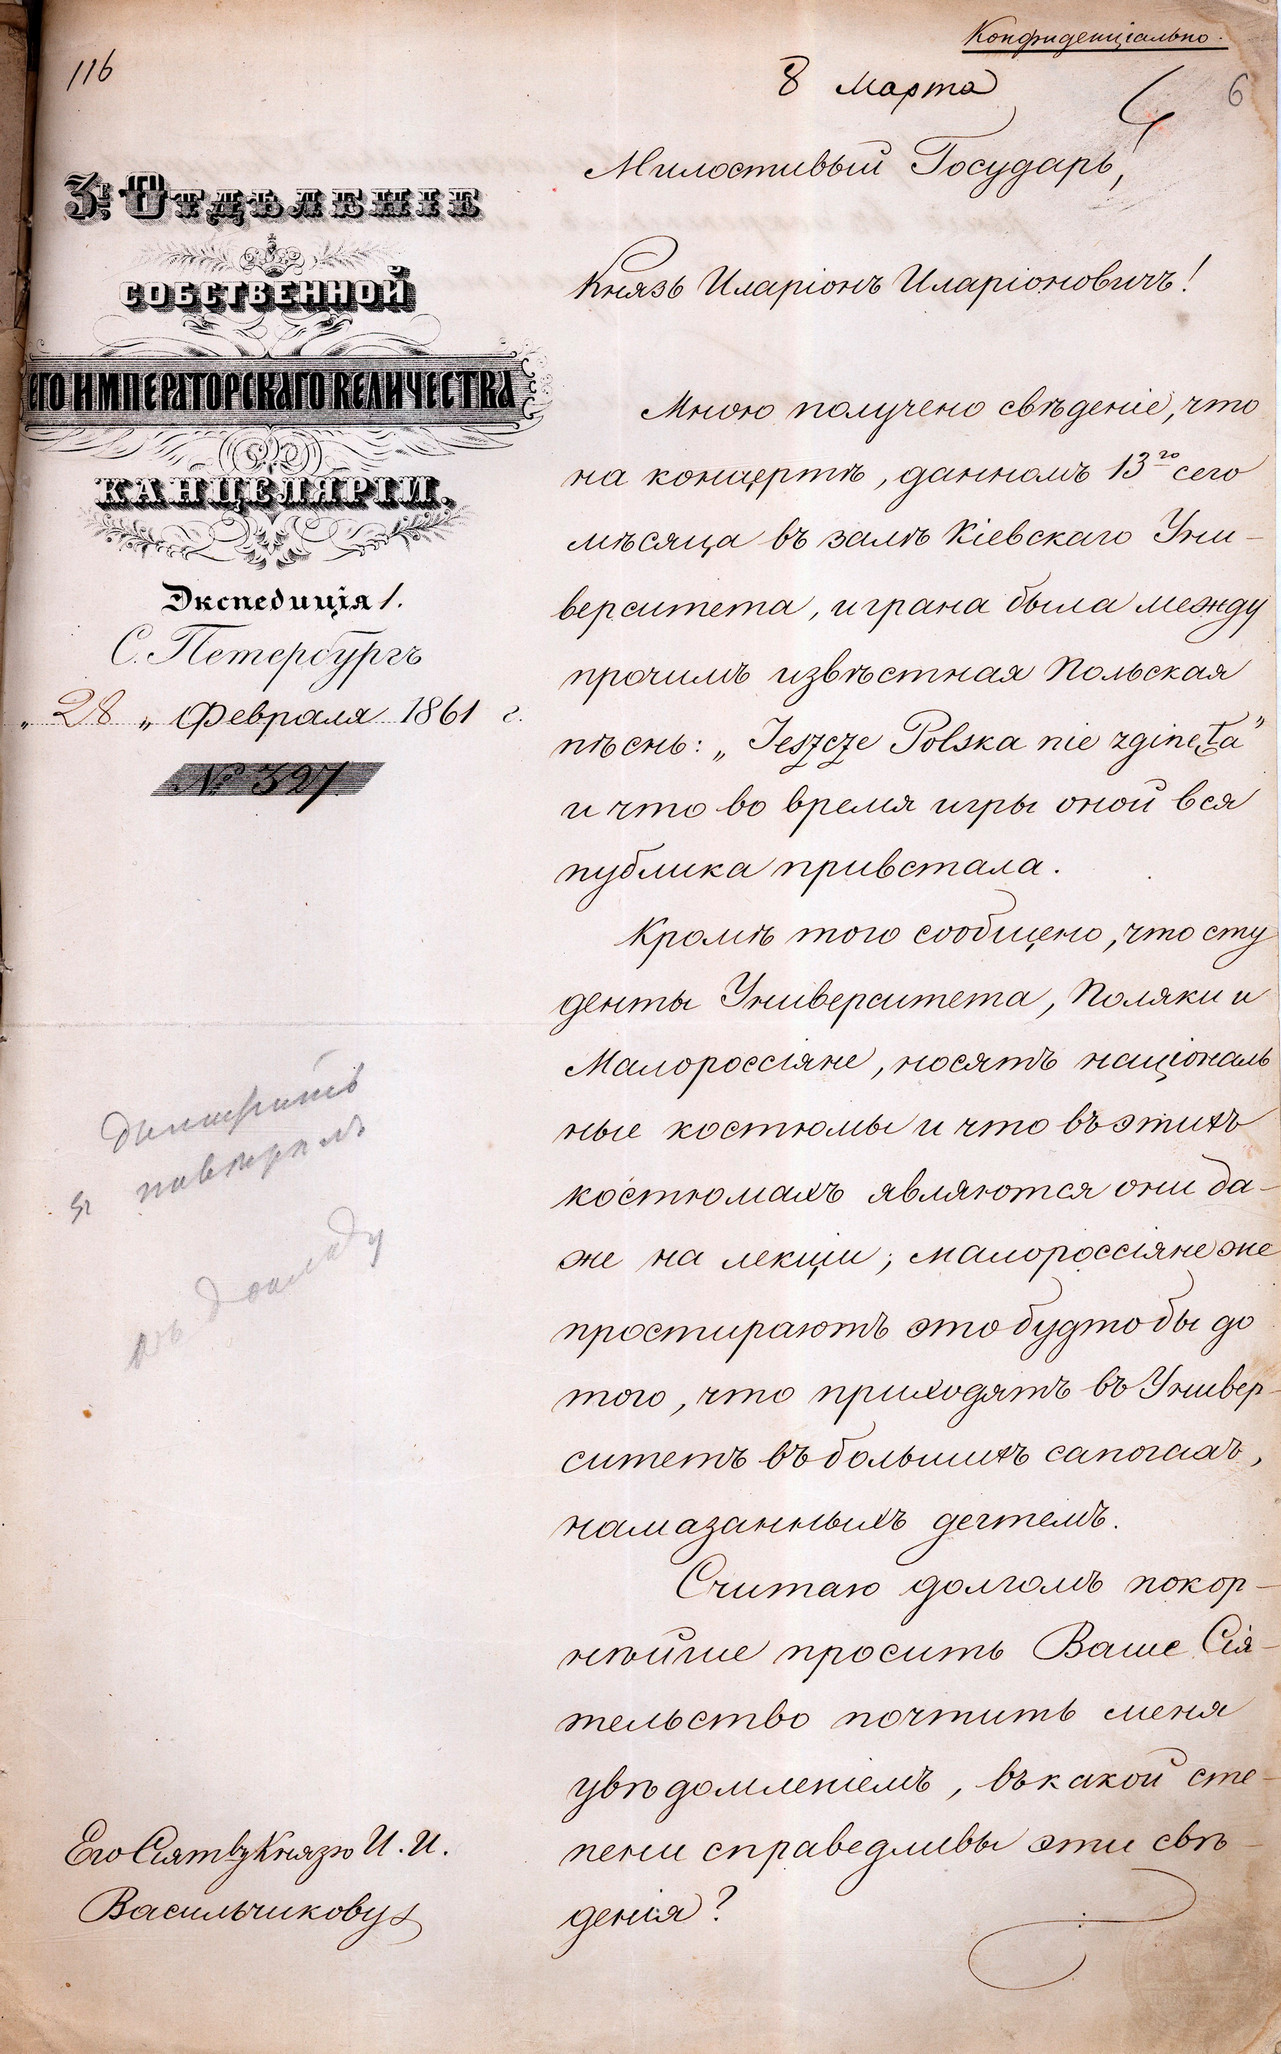 Конфиденціально.
116
8 Марта
6
3е Отдѣленіе
Собственной
Его Императорскаго Величества
Канцеляріи.
Экспедиція 1.
С. Петербургъ
„ 28 „ Февраля 1861 г.
№ 327
Милостивый Государь,
Князь Иларіонъ Иларіоновичъ!
Мною получено свѣденіе, что
на концертѣ, данномъ 13го сего
мѣсяца въ залѣ Кіевскаго Уни-
верситета, играна была между
прочимъ извѣстная Польская
пѣснь: „Jeszcze Polska nie zginęła”
и что во время игры оной вся
публика привстала.
Кромѣ того сообщено, что сту
денты Университета, Поляки и
Малороссіяне, носятъ національ
ные костюмы и что въ этихъ
костюмахъ являются они да-
же на лекціи; малороссіяне же
простираютъ это будтобы до
того, что приходятъ въ Универ-
ситетъ въ большихъ сапогахъ,
намазанныхъ дегтемъ.
Считаю долгомъ покор-
нѣйше просить Ваше Сія-
тельство почтить меня
увѣдомленіемъ, въ какой сте-
пени справедливы эти свѣ-
денія?
къ докладу
Его Сіятву Князю И. И.
Васильчикову